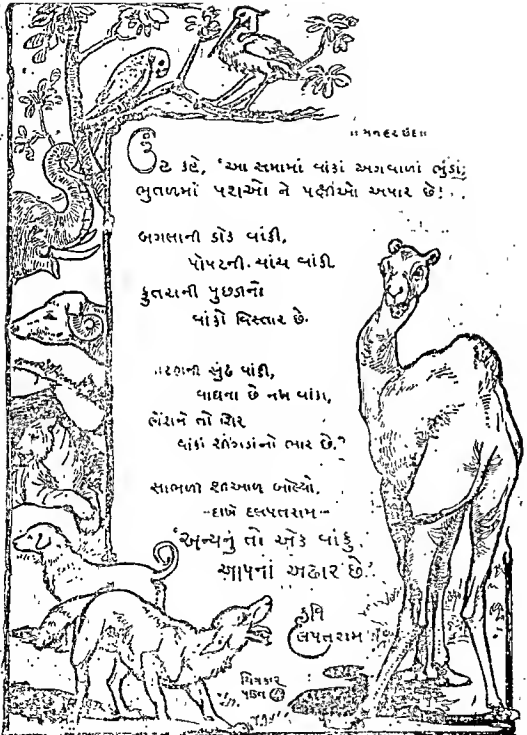 ॥ મનહર છંદ ॥
ઉંટ કહે, 'આ સભામાં વાંકાં અંગવાળાં ભુંડાં;
ભુતળમાં પશુઓ ને પક્ષીઓ અપાર છે!
બગલાની ડોક વાંકી,
પોપટની ચાંચ વાંકી
કુતરાની પુછડીનો
વાંકો વિસ્તાર છે.
વારણની સુંઢ વાંકી,
વાઘના છે નખ વાંકા,
ભેંશને તો શિર
વાંકાં શીંગડાંનો ભાર છે.'
સાંભળી શિઆળ બોલ્યો,
-દાખે દલપતરામ-
'અન્યનું તો એક વાંકું
આપનાં અઢાર છે.'
કવિ
દલપતરામ
ચિત્રકાર